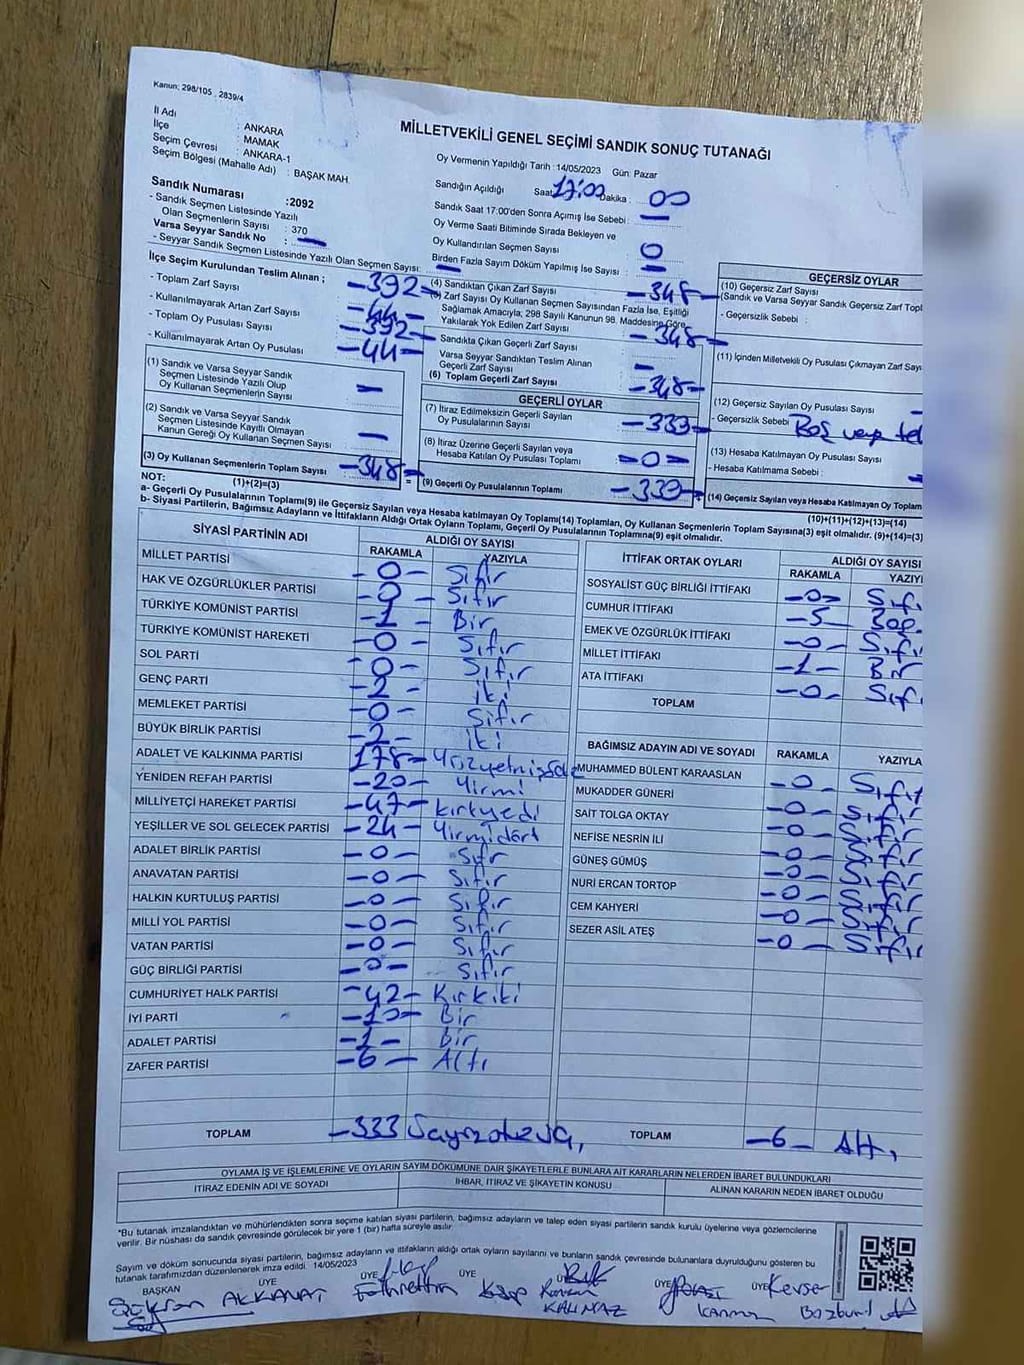 Kanun: 298/105 2839/4
MİLLETVEKİLİ GENEL SEÇİMİ SANDIK SONUÇ TUTANAĞI
İl Adı : ANKARA
İlçe : MAMAK
Seçim Çevresi : ANKARA-1
Seçim Bölgesi (Mahalle Adı) : BAŞAK MAH.
Sandık Numarası :2092
- Sandık Seçmen Listesinde Yazılı
Olan Seçmenlerin Sayısı : 370
Varsa Seyyar Sandık No : -
- Seyyar Sandık Seçmen Listesinde Yazılı Olan Seçmen Sayısı: -
Oy Vermenin Yapıldığı Tarih : 14/05/2023 Gün: Pazar
Sandığın Açıldığı Saat 17:00 Dakika : 00
Sandık Saat 17:00'den Sonra Açılmış İse Sebebi : -
Oy Verme Saati Bitiminde Sırada Bekleyen ve
Oy Kullandırılan Seçmen Sayısı : 0
Birden Fazla Sayım Döküm Yapılmış İse Sayısı : -
İlçe Seçim Kurulundan Teslim Alınan ;
- Toplam Zarf Sayısı : -392-
- Kullanılmayarak Artan Zarf Sayısı : -44-
- Toplam Oy Pusulası Sayısı : -392-
- Kullanılmayarak Artan Oy Pusulası : -44-
(1) Sandık ve Varsa Seyyar Sandık
Seçmen Listesinde Yazılı Olup
Oy Kullanan Seçmenlerin Sayısı : -
(2) Sandık ve Varsa Seyyar Sandık
Seçmen Listesinde Kayıtlı Olmayan
Kanun Gereği Oy Kullanan Seçmen Sayısı : -
(3) Oy Kullanan Seçmenlerin Toplam Sayısı : -348-
(1)+(2)=(3)
(4) Sandıktan Çıkan Zarf Sayısı : -348-
(5) Zarf Sayısı Oy Kullanan Seçmen Sayısından Fazla İse, Eşitliği
Sağlamak Amacıyla, 298 Sayılı Kanunun 98. Maddesine Göre
Yakılarak Yok Edilen Zarf Sayısı :
Sandıkta Çıkan Geçerli Zarf Sayısı : -348-
Varsa Seyyar Sandıktan Teslim Alınan
Geçerli Zarf Sayısı : -
(6) Toplam Geçerli Zarf Sayısı : -348-
GEÇERLİ OYLAR
(7) İtiraz Edilmeksizin Geçerli Sayılan
Oy Pusulalarının Sayısı : -339-
(8) İtiraz Üzerine Geçerli Sayılan veya
Hesaba Katılan Oy Pusulası Toplamı : -0-
(9) Geçerli Oy Pusulalarının Toplamı : -339-
GEÇERSİZ OYLAR
(10) Geçersiz Zarf Sayısı
(Sandık ve Varsa Seyyar Sandık Geçersiz Zarf
- Geçersizlik Sebebi :
(11) İçinden Milletvekili Oy Pusulası Çıkmayan Zarf
(12) Geçersiz Sayılan Oy Pusulası Sayısı
- Geçersizlik Sebebi : Boş veya
(13) Hesaba Katılmayan Oy Pusulası Sayısı
- Hesaba Katılmama Sebebi :
(14) Geçersiz Sayılan veya Hesaba Katılmayan Oy Pusulası
(10)+(11)+(12)+(13)=(14)
NOT:
a- Geçerli Oy Pusulalarının Toplamı(9) ile Geçersiz Sayılan veya Hesaba katılmayan Oy Toplamı(14) Toplamları, Oy Kullanan Seçmenlerin Toplam Sayısına(3) eşit olmalıdır. (9)+(14)=(3)
b- Siyasi Partilerin, Bağımsız Adayların ve İttifakların Aldığı Ortak Oyların Toplamı, Geçerli Oy Pusulalarının Toplamına(9) eşit olmalıdır.
SİYASİ PARTİNİN ADI ALDIĞI OY SAYISI
RAKAMLA YAZIYLA
MİLLET PARTİSİ -0- Sıfır
HAK VE ÖZGÜRLÜKLER PARTİSİ -0- Sıfır
TÜRKİYE KOMÜNİST PARTİSİ -1- Bir
TÜRKİYE KOMÜNİST HAREKETİ -0- Sıfır
SOL PARTİ -0- Sıfır
GENÇ PARTİ -2- iki
MEMLEKET PARTİSİ -0- Sıfır
BÜYÜK BİRLİK PARTİSİ -2- iki
ADALET VE KALKINMA PARTİSİ 178-
YENİDEN REFAH PARTİSİ -20- Yirmi
MİLLİYETÇİ HAREKET PARTİSİ -47- kırkyedi
YEŞİLLER VE SOL GELECEK PARTİSİ -24- Yirmidört
ADALET BİRLİK PARTİSİ -0- Sıfır
ANAVATAN PARTİSİ -0- Sıfır
HALKIN KURTULUŞ PARTİSİ -0- Sıfır
MİLLİ YOL PARTİSİ -0- Sıfır
VATAN PARTİSİ -0- Sıfır
GÜÇ BİRLİĞİ PARTİSİ -0- Sıfır
CUMHURİYET HALK PARTİSİ -42- Kırkiki
İYİ PARTİ Bir
ADALET PARTİSİ -1- Bir
ZAFER PARTİSİ -6- Altı
TOPLAM -333
İTTİFAK ORTAK OYLARI ALDIĞI OY SAYISI
RAKAMLA
SOSYALİST GÜÇ BİRLİĞİ İTTİFAKI -0-
CUMHUR İTTİFAKI -5
EMEK VE ÖZGÜRLÜK İTTİFAKI -0-
MİLLET İTTİFAKI -1- Bir
ATA İTTİFAKI -0-
TOPLAM
BAĞIMSIZ ADAYIN ADI VE SOYADI RAKAMLA YAZIYLA
MUHAMMED BÜLENT KARAASLAN -0- Sıfır
MUKADDER GÜNERİ -0- Sıfır
SAİT TOLGA OKTAY -0- Sıfır
NEFİSE NESRİN İLİ -0- Sıfır
GÜNEŞ GÜMÜŞ -0- Sıfır
NURİ ERCAN TORTOP -0- Sıfır
CEM KAHYERİ -0- Sıfır
SEZER ASİL ATEŞ -0- Sıfır
TOPLAM -6- Altı
OYLAMA İŞ VE İŞLEMLERİNE VE OYLARIN SAYIM DÖKÜMÜNE DAİR ŞİKAYETLERLE BUNLARA AİT KARARLARIN NELERDEN İBARET BULUNDUKLARI
İTİRAZ EDENİN ADI VE SOYADI İHBAR, İTİRAZ VE ŞİKAYETİN KONUSU ALINAN KARARIN NEDEN İBARET OLDUĞU
*Bu tutanak imzalandıktan ve mühürlendikten sonra seçime katılan siyasi partilerin, bağımsız adayların ve talep eden siyasi partilerin sandık kurulu üyelerine veya gözlemcilerine
verilir. Bir nüshası da sandık çevresinde görülecek bir yere 1 (bir) hafta süreyle asılır.
Sayım ve döküm sonucunda siyasi partilerin, bağımsız adayların ve ittifakların aldığı ortak oyların sayılarını ve bunların sandık çevresinde bulunanlara duyrulduğunu gösteren bu
tutanak tarafımızdan düzenlenerek imza edildi. 14/05/2023
BAŞKAN ÜYE ÜYE ÜYE ÜYE ÜYE ÜYE
AKKANAT Fathrettin KALMAZ Kevser